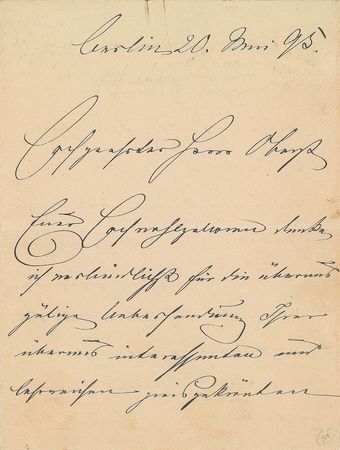 Berlin 20. Mai 95.
Hochgeehrter Herr Oberst
Euer Hochwohlgeboren danke
ich verbindlichst für die überaus
gütige Uebersendung Ihrer
überaus interessanten und
lehrreichen preisgekrönten